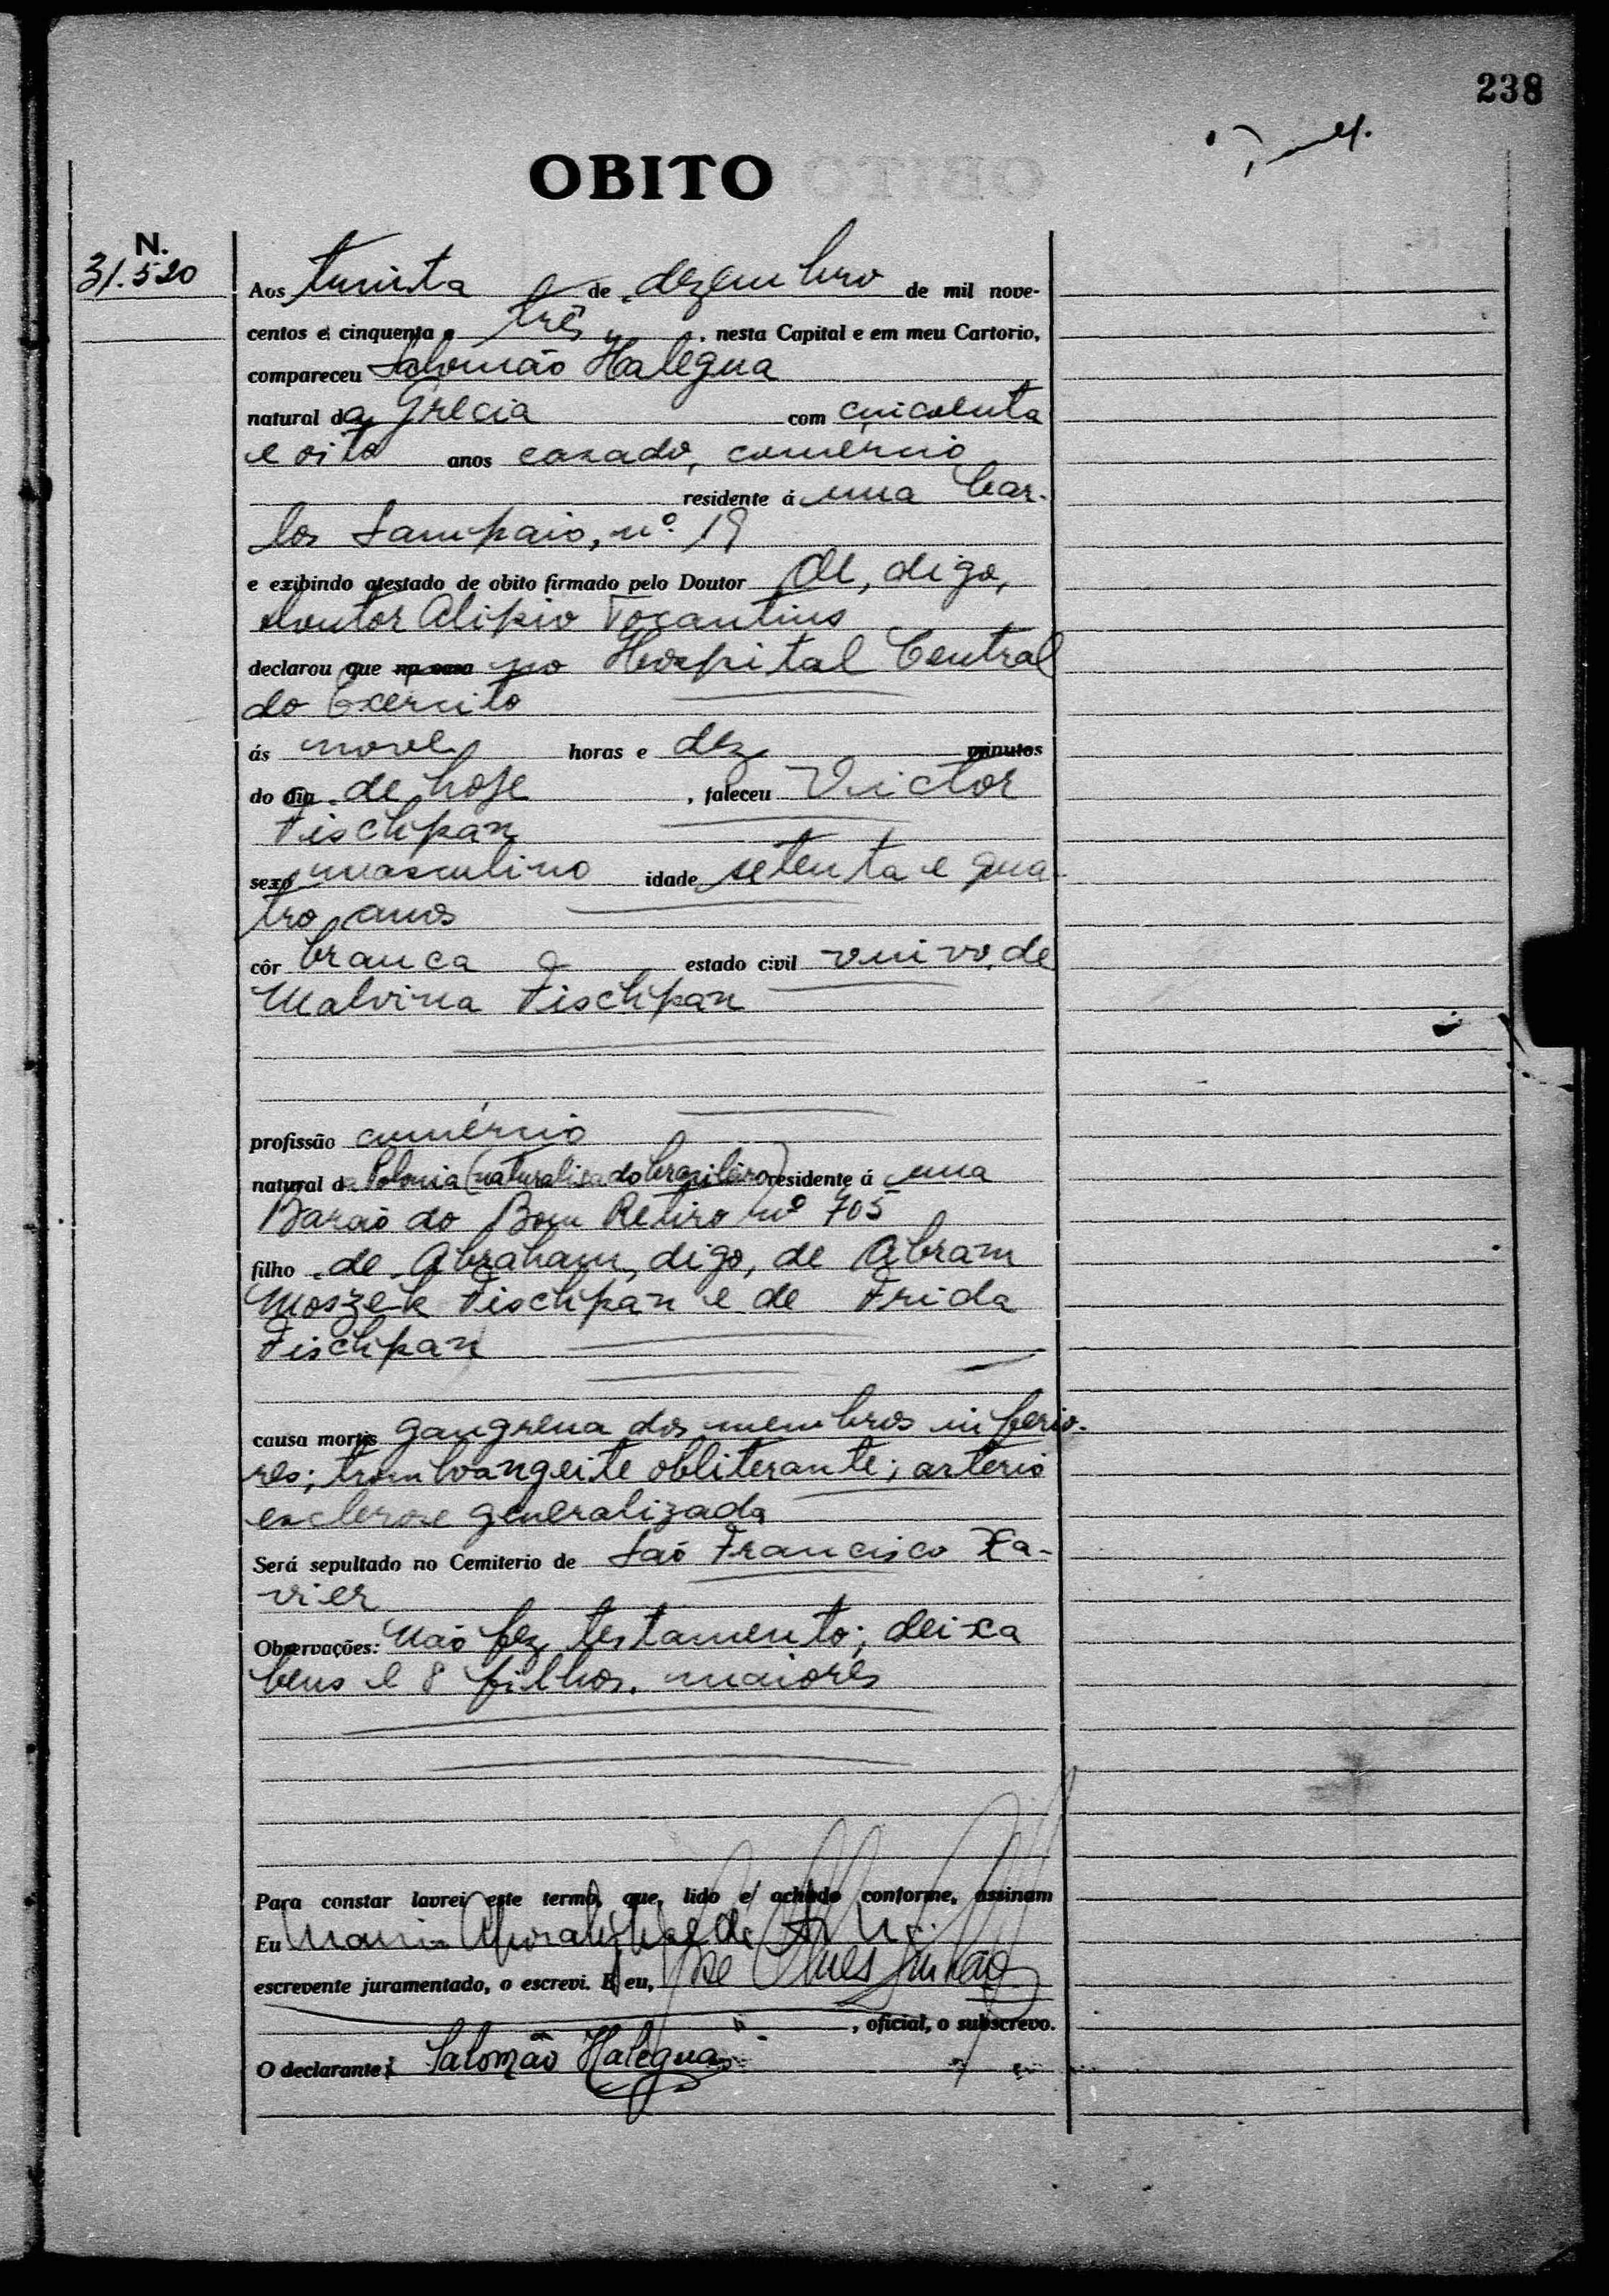 238
OBITO
N.
31.520
Aos trinta de dezembro de mil nove-
centos e cinquenta e três, nesta Capital e em meu Cartorio,
compareceu Salomão Halegua
natural da Grecia com cincoenta
e oito anos casado, comércio
residente á rua Car-
los Sampaio, nº 19
e exibindo atestado de obito firmado pelo Doutor Al, digo,
doutor Alipio Tocantins
declarou que na casa no Hospital Central
do Exercito
ás nove horas e dez minutos
do dia de hoje, faleceu Victor
Fischpan
sexo masculino idade setenta e qua-
tro anos
côr branca estado civil viuvo, de
Malvina Fischpan
profissão comércio
natural da Polonia (naturalisado brasileiro) residente á rua
Barão do Bom Retiro nº 705
filho de Abraham, digo, de Abram
Moszek Fischpan e de Frida
Fischpan
causa mortis gangrena dos membros inferio-
res; tromboangeite obliterante; arterio
esclerose generalizada
Será sepultado no Cemiterio de São Francisco Xa-
vier
Observações: Não fez testamento; deixa
bens e 8 filhos. maiores
Para constar lavrei este termo, que, lido e achado conforme, assinam
Eu
escrevente juramentado, o escrevi. E eu,
, oficial, o subscrevo.
O declarante: Salomão Halegua